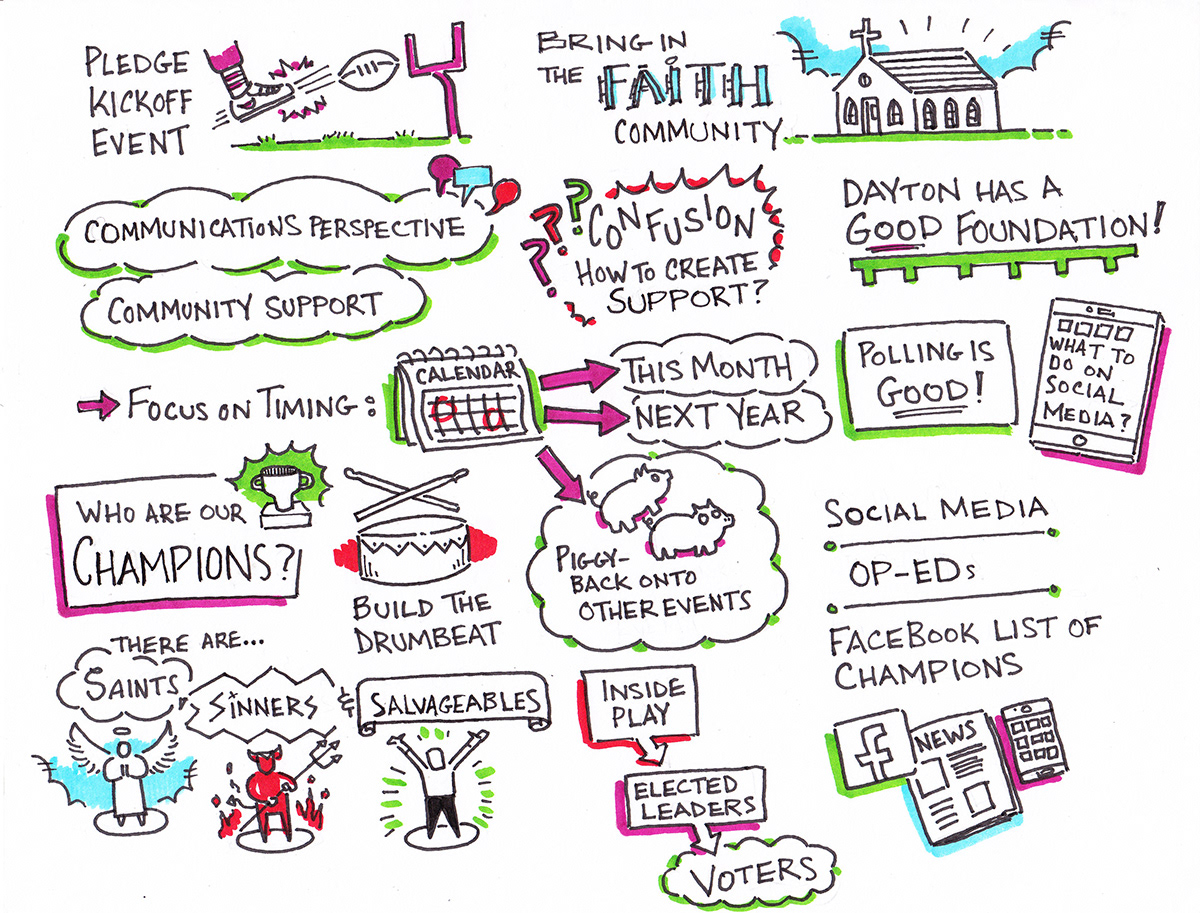 PLEDGE
KICKOFF
EVENT
BRING IN
THE FAITH
COMMUNITY
COMMUNICATIONS PERSPECTIVE
COMMUNITY SUPPORT
? ? ?
CONFUSION
HOW TO CREATE
SUPPORT?
DAYTON HAS A
GOOD FOUNDATION!
FOCUS ON TIMING:
CALENDAR
THIS MONTH
NEXT YEAR
POLLING IS
GOOD!
WHAT TO
DO ON
SOCIAL
MEDIA?
WHO ARE OUR
CHAMPIONS?
BUILD THE
DRUMBEAT
PIGGY-
BACK ONTO
OTHER EVENTS
SOCIAL MEDIA
OP-EDs
FACEBOOK LIST OF
CHAMPIONS
THERE ARE...
SAINTS
SINNERS
&
SALVAGEABLES
INSIDE
PLAY
ELECTED
LEADERS
VOTERS
f
NEWS